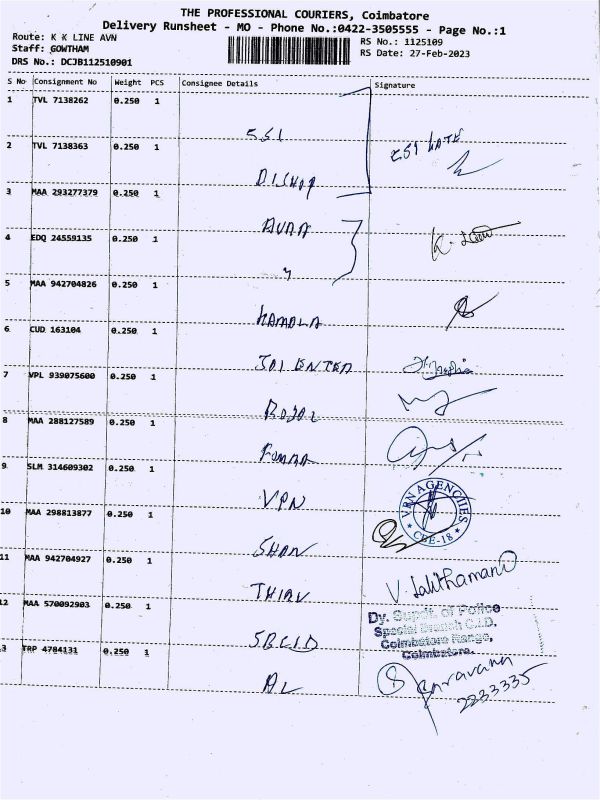 THE PROFESSIONAL COURIERS, Coimbatore
Delivery Runsheet - MO - Phone No.:0422-3505555 - Page No.:1
Route: K K LINE AVN
RS No.: 1125109
Staff: GOWTHAM
RS Date: 27-Feb-2023
DRS No.: DCJB112510901
S No Consignment No Weight PCS Consignee Details Signature
1 TVL 7138262 0.250 1
ESI
2 TVL 7138363 0.250 1
ESI
BISHOP
3 MAA 293277379 0.250 1
4 EDQ 24559135 0.250 1
5 MAA 942704826 0.250 1
KAMALA
6 CUD 163104 0.250 1
JAI ENTER
7 VPL 939075600 0.250 1
ROYAL
8 MAA 288127589 0.250 1
9 SLM 314609302 0.250 1
VPN
VRN AGENCIIES
CBE-18
10 MAA 298813877 0.250 1
SHAN
11 MAA 942704927 0.250 1
THIRU
V. Lalithamani
12 MAA 570092903 0.250 1
SBCID
Dy. Supdt. of Police
Special Branch C.I.D.
Coimbatore Range,
Coimbatore.
3 TRP 4784131 0.250 1
AL
Saravana
2233335